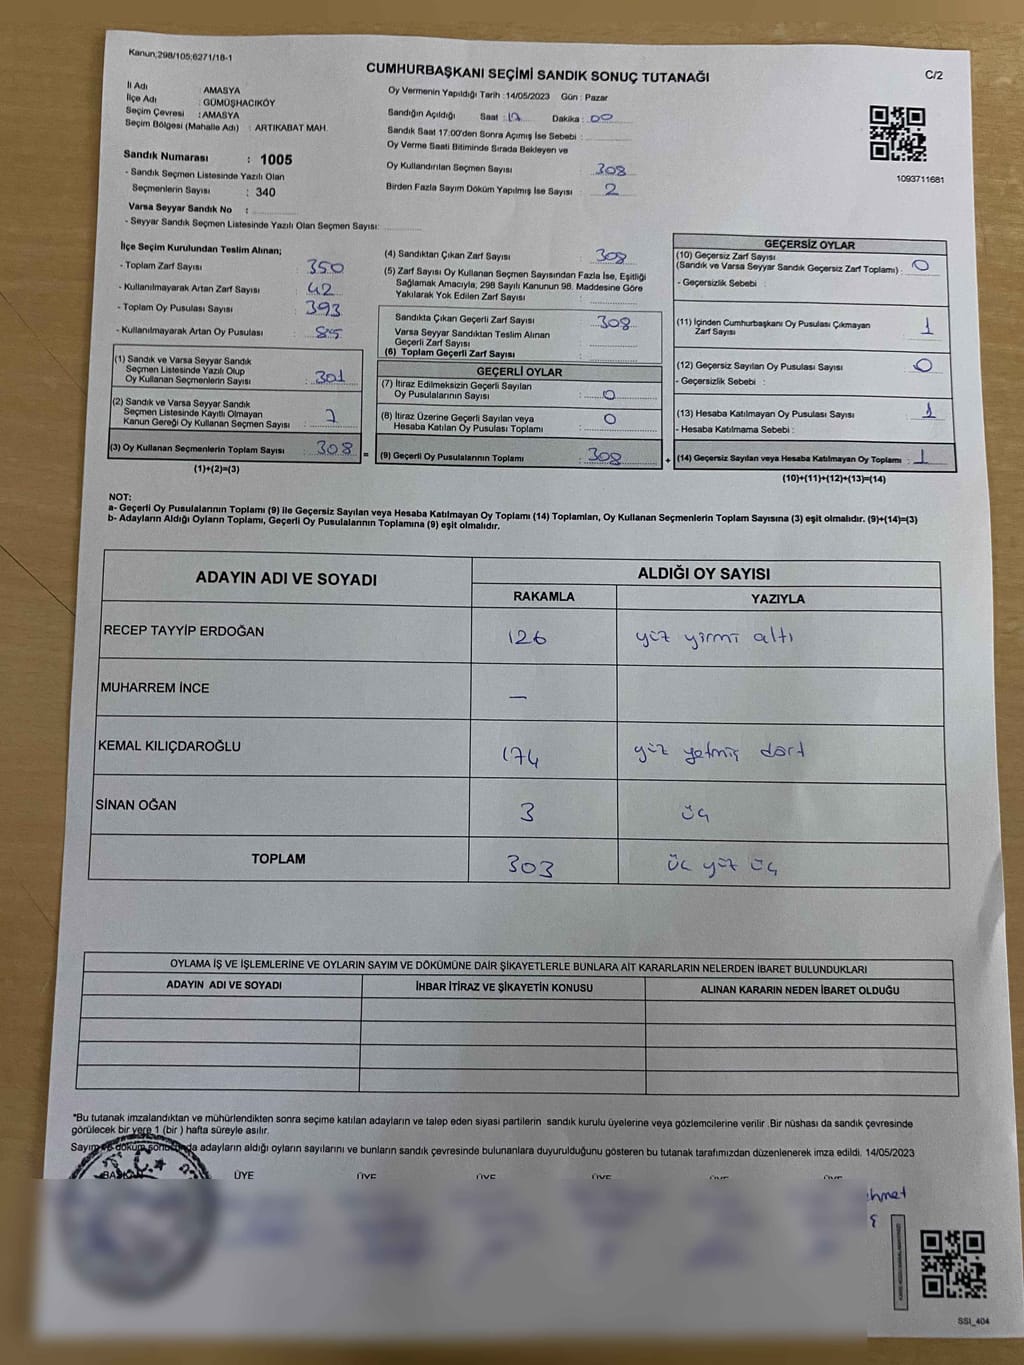 Kanun;298/105;6271/18-1
CUMHURBAŞKANI SEÇİMİ SANDIK SONUÇ TUTANAĞI
C/2
İl Adı : AMASYA
İlçe Adı : GÜMÜŞHACIKÖY
Seçim Çevresi : AMASYA
Seçim Bölgesi (Mahalle Adı) : ARTIKABAT MAH.
Sandık Numarası : 1005
- Sandık Seçmen Listesinde Yazılı Olan
Seçmenlerin Sayısı : 340
Varsa Seyyar Sandık No :
- Seyyar Sandık Seçmen Listesinde Yazılı Olan Seçmen Sayısı:
Oy Vermenin Yapıldığı Tarih : 14/05/2023 Gün : Pazar
Sandığın Açıldığı Saat : 17 Dakika : 00
Sandık Saat 17:00'den Sonra Açımış İse Sebebi :
Oy Verme Saati Bitiminde Sırada Bekleyen ve
Oy Kullandırılan Seçmen Sayısı : 308
Birden Fazla Sayım Döküm Yapılmış İse Sayısı : 2
1093711681
İlçe Seçim Kurulundan Teslim Alınan;
- Toplam Zarf Sayısı : 350
- Kullanılmayarak Artan Zarf Sayısı : 42
- Toplam Oy Pusulası Sayısı : 393
- Kullanılmayarak Artan Oy Pusulası : 85
(1) Sandık ve Varsa Seyyar Sandık
Seçmen Listesinde Yazılı Olup
Oy Kullanan Seçmenlerin Sayısı : 301
(2) Sandık ve Varsa Seyyar Sandık
Seçmen Listesinde Kayıtlı Olmayan
Kanun Gereği Oy Kullanan Seçmen Sayısı : 7
(3) Oy Kullanan Seçmenlerin Toplam Sayısı : 308 =
(1)+(2)=(3)
(4) Sandıktan Çıkan Zarf Sayısı : 308
(5) Zarf Sayısı Oy Kullanan Seçmen Sayısından Fazla İse, Eşitliği
Sağlamak Amacıyla, 298 Sayılı Kanunun 98. Maddesine Göre
Yakılarak Yok Edilen Zarf Sayısı :
Sandıkta Çıkan Geçerli Zarf Sayısı : 308
Varsa Seyyar Sandıktan Teslim Alınan
Geçerli Zarf Sayısı :
(6) Toplam Geçerli Zarf Sayısı :
GEÇERLİ OYLAR
(7) İtiraz Edilmeksizin Geçerli Sayılan
Oy Pusulalarının Sayısı : 0
(8) İtiraz Üzerine Geçerli Sayılan veya
Hesaba Katılan Oy Pusulası Toplamı : 0
(9) Geçerli Oy Pusulalarının Toplamı : 308 +
GEÇERSİZ OYLAR
(10) Geçersiz Zarf Sayısı
(Sandık ve Varsa Seyyar Sandık Geçersiz Zarf Toplamı) : 0
- Geçersizlik Sebebi :
(11) İçinden Cumhurbaşkanı Oy Pusulası Çıkmayan
Zarf Sayısı : 1
(12) Geçersiz Sayılan Oy Pusulası Sayısı : 0
- Geçersizlik Sebebi :
(13) Hesaba Katılmayan Oy Pusulası Sayısı : 1
- Hesaba Katılmama Sebebi :
(14) Geçersiz Sayılan veya Hesaba Katılmayan Oy Toplamı : 1
(10)+(11)+(12)+(13)=(14)
NOT:
a- Geçerli Oy Pusulalarının Toplamı (9) ile Geçersiz Sayılan veya Hesaba Katılmayan Oy Toplamı (14) Toplamları, Oy Kullanan Seçmenlerin Toplam Sayısına (3) eşit olmalıdır. (9)+(14)=(3)
b- Adayların Aldığı Oyların Toplamı, Geçerli Oy Pusulalarının Toplamına (9) eşit olmalıdır.
ADAYIN ADI VE SOYADI
ALDIĞI OY SAYISI
RAKAMLA YAZIYLA
RECEP TAYYİP ERDOĞAN 126 yüz yirmi altı
MUHARREM İNCE —
KEMAL KILIÇDAROĞLU 174 yüz yetmiş dört
SİNAN OĞAN 3 üç
TOPLAM 303 üç yüz üç
OYLAMA İŞ VE İŞLEMLERİNE VE OYLARIN SAYIM VE DÖKÜMÜNE DAİR ŞİKAYETLERLE BUNLARA AİT KARARLARIN NELERDEN İBARET BULUNDUKLARI
ADAYIN ADI VE SOYADI İHBAR İTİRAZ VE ŞİKAYETİN KONUSU ALINAN KARARIN NEDEN İBARET OLDUĞU
*Bu tutanak imzalandıktan ve mühürlendikten sonra seçime katılan adayların ve talep eden siyasi partilerin sandık kurulu üyelerine veya gözlemcilerine verilir .Bir nüshası da sandık çevresinde
görülecek bir yere 1 (bir ) hafta süreyle asılır.
Sayım ve döküm sonucunda adayların aldığı oyların sayılarını ve bunların sandık çevresinde bulunanlara duyurulduğunu gösteren bu tutanak tarafımızdan düzenlenerek imza edildi. 14/05/2023
BAŞKAN ÜYE ÜYE ÜYE ÜYE ÜYE ÜYE
SSI_404